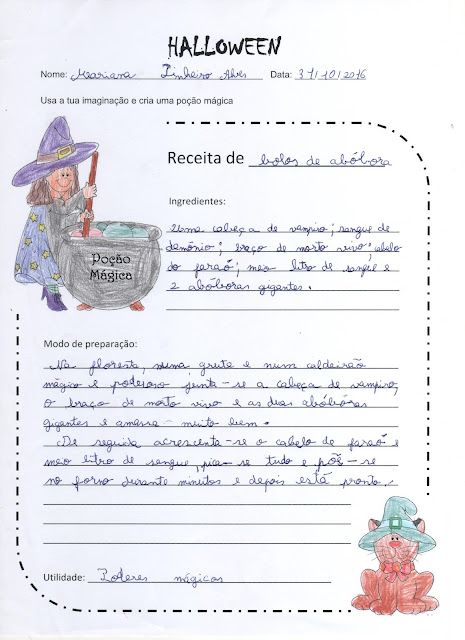 HALLOWEEN
Nome: Mariana Pinheiro Alves Data: 31/10/2016
Usa a tua imaginação e cria uma poção mágica
Receita de bolos de abóbora
Ingredientes:
Uma cabeça de vampiro; sangue de
demónio; braço de morto vivo; cabelo
do faraó; meio litro de sangue e
2 abóboras gigantes.
Poção
Mágica
Modo de preparação:
Na floresta, numa gruta e num caldeirão
mágico e poderoso junta-se a cabeça de vampiro,
o braço de morto vivo e as duas abóboras
gigantes e amassa-muito bem.
De seguida acrescenta-se o cabelo de faraó e
meo litro de sangue, pica-se tudo e põe-se
no forno durante minutos e depois está pronto.
Utilidade: Poderes mágicos